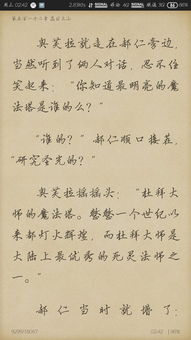 周三 02:42
2.83K/s
4G
奥芙拉就走在郝仁旁边，
当然听到了俩人对话，忍不住
笑起来：“你知道最明亮的魔
法塔是谁的么？”
“谁的？”郝仁顺口接茬，
“研究圣光的？”
奥芙拉摇摇头：“杜科大
师的魔法塔。整整一个世纪以
来都灯火辉煌，而杜科大师是
大陆上最优秀的死灵法师之
一。”
郝仁当时就懵了：
02:42